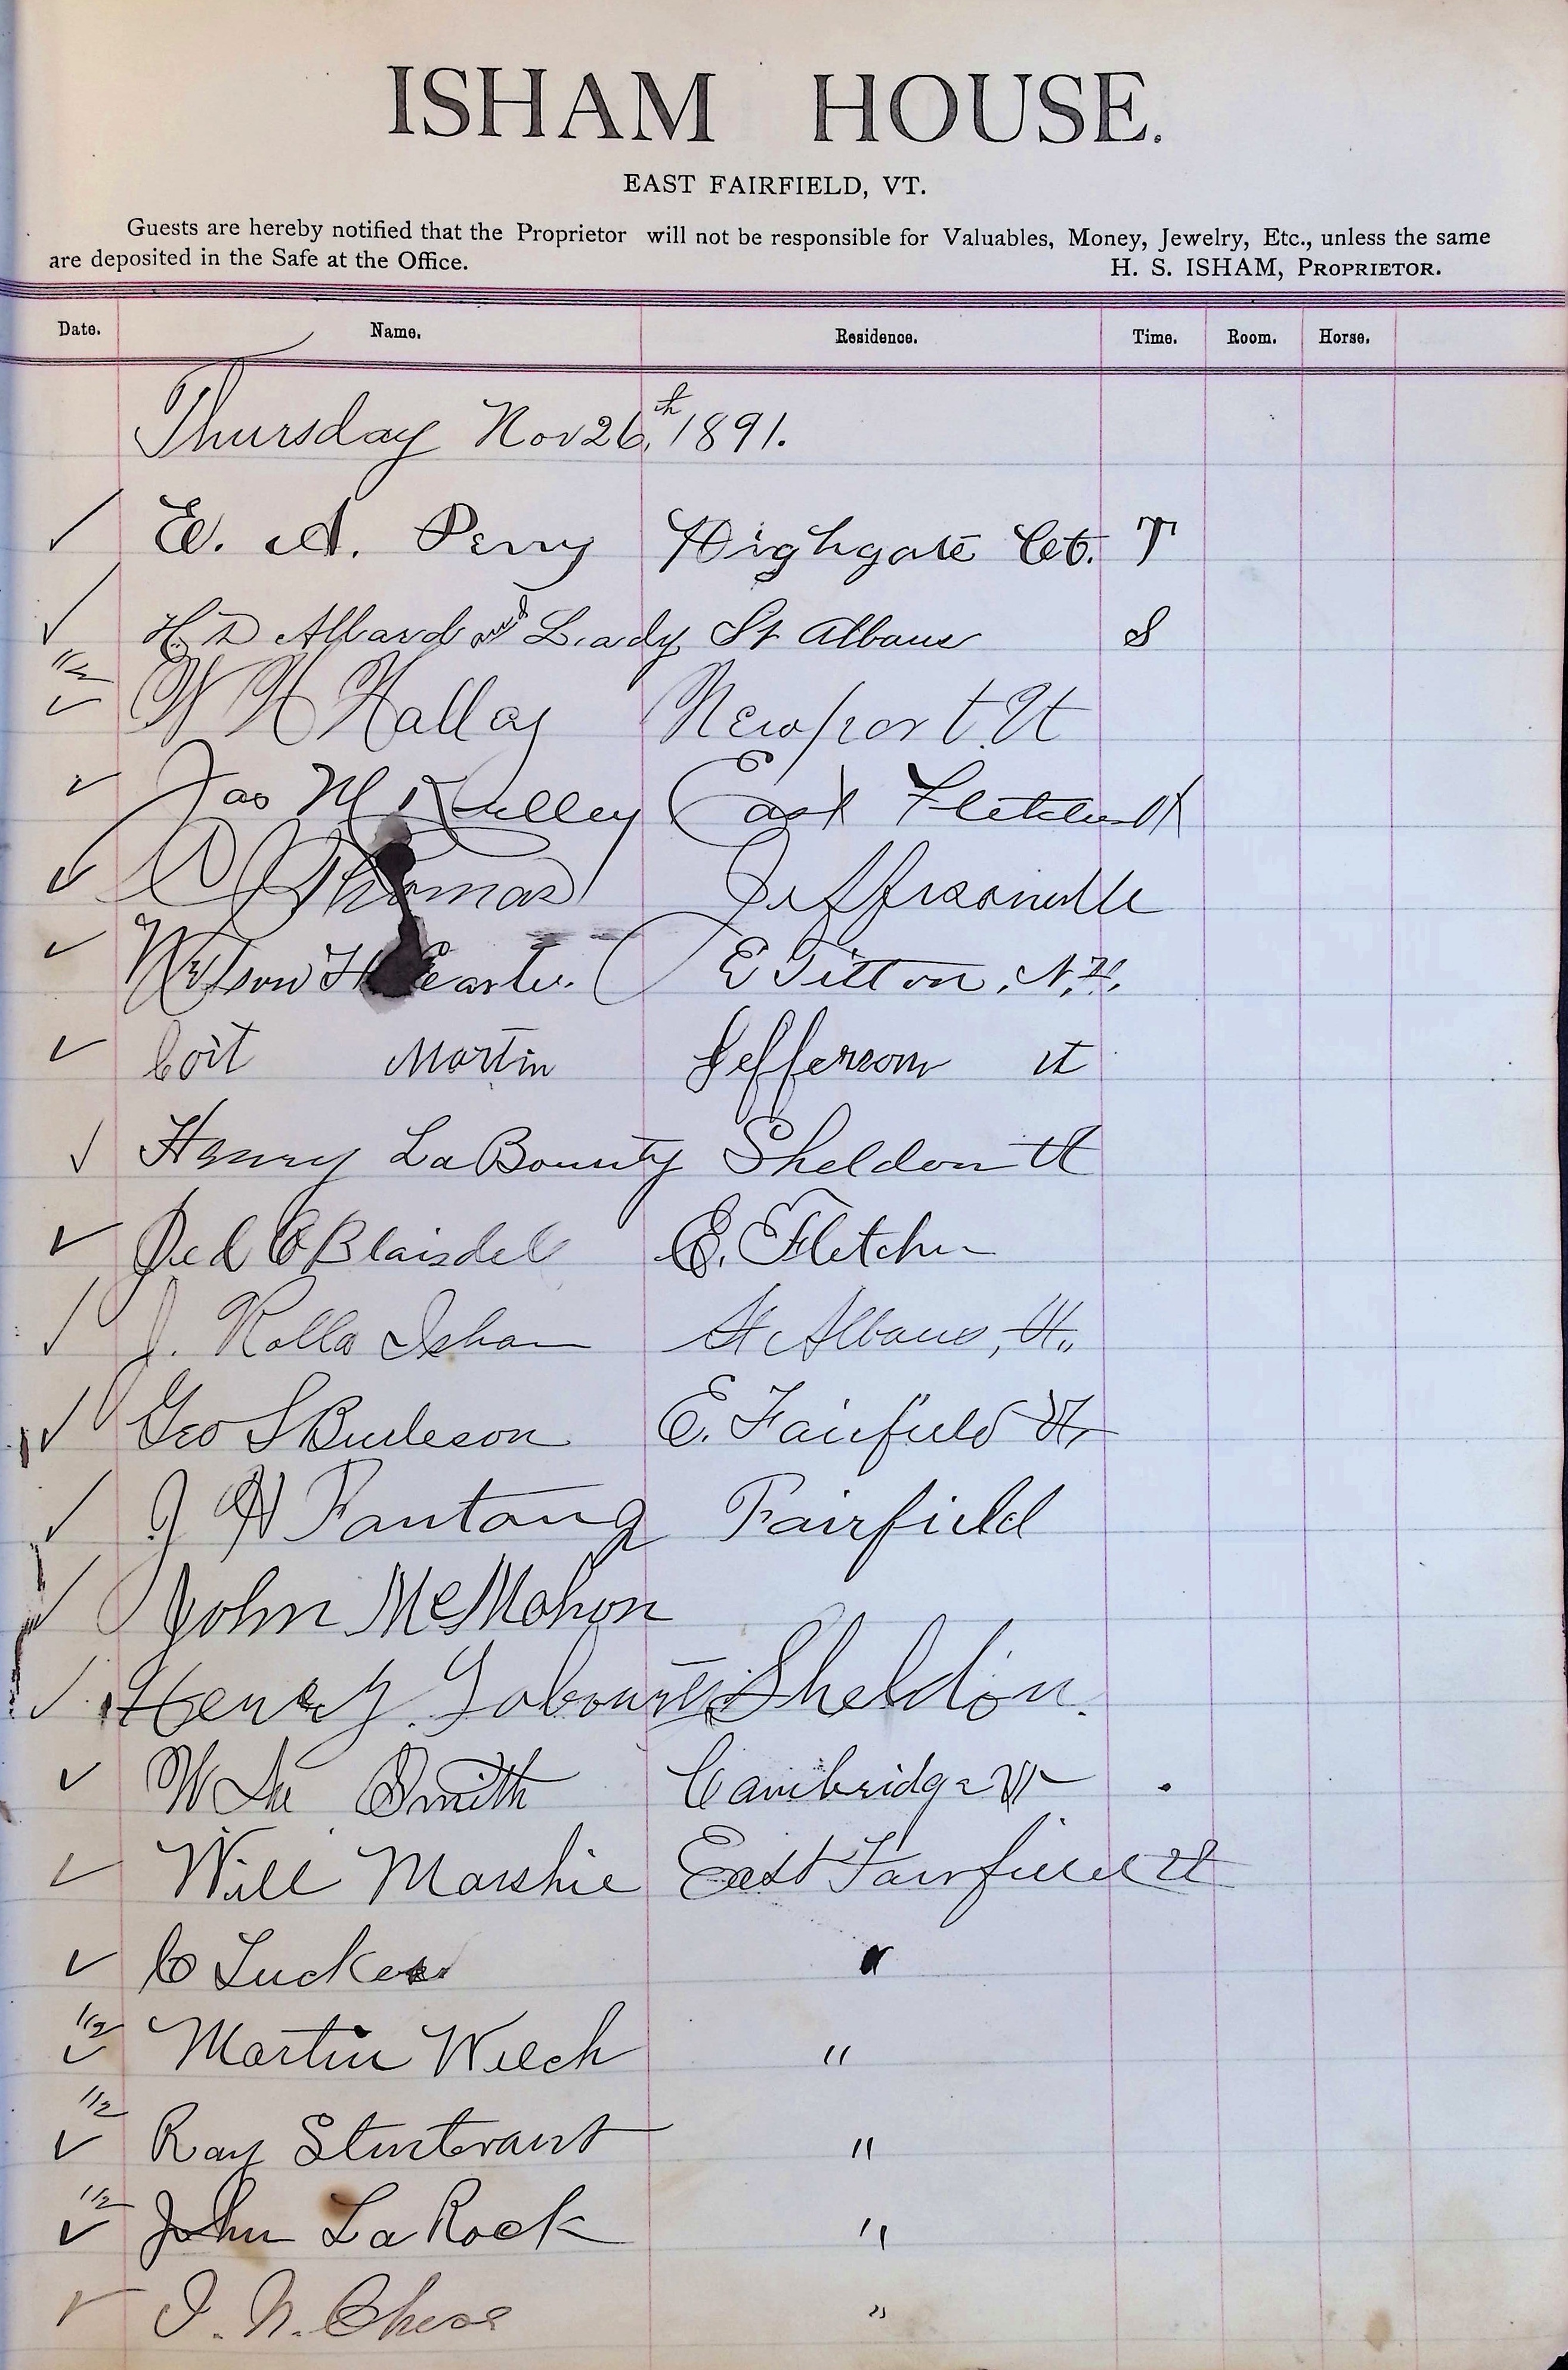 ISHAM HOUSE.
EAST FAIRFIELD, VT.
Guests are hereby notified that the Proprietor will not be responsible for Valuables, Money, Jewelry, Etc., unless the same
are deposited in the Safe at the Office. H. S. ISHAM, PROPRIETOR.
Date. Name. Residence. Time. Room. Horse.
Thursday Nov 26th, 1891.
✓ E. A. Perry Highgate Ct. T
✓ H. D Allard and Lady St Albans S
1/2 ✓ W H Halley Newport. Vt
✓ Jas M Kelley East Fletcher Vt
✓ Thomas Jeffersonville
✓ Nelson H E Tilton, N.H.
✓ Coit Martin Jefferson Vt
✓ Henry LaBounty Sheldon Vt
✓ Jed C Blaisdel E. Fletcher
✓ J. Rolla Isham St Albans, Vt.
✓ Geo S Burleson E. Fairfield Vt,
✓ J H Fontang Fairfield
✓ John McMahon
✓ Henry. Labounty Sheldon.
✓ W Smith Cambridge Vt
✓ Will Marshie East Fairfield Vt
✓ C Tucker "
1/2 ✓ Martin Welch "
1/2 ✓ Ray Sturtevant "
1/2 ✓ John La Rock "
✓ I. N. Chase "